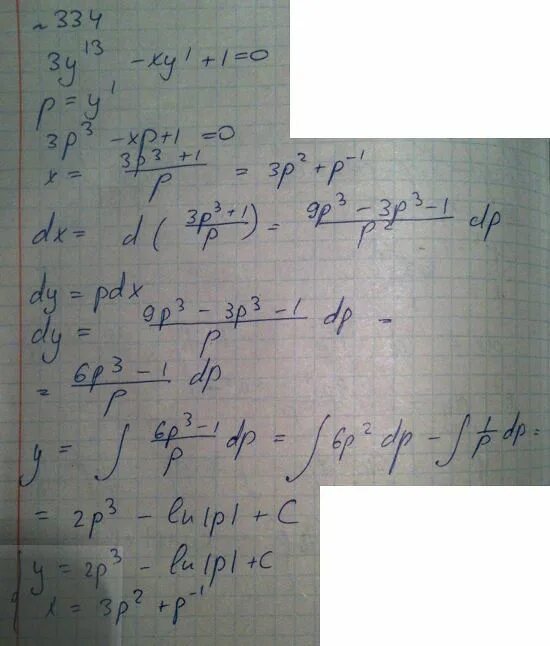 ~334
3y'³ - xy' + 1 = 0
p = y'
3p³ - xp + 1 = 0
x = (3p³ + 1)/p = 3p² + p⁻¹
dx = d((3p³ + 1)/p) = (9p³ - 3p³ - 1)/p² dp
dy = pdx
dy = (9p³ - 3p³ - 1)/p dp =
= (6p³ - 1)/p dp
y = ∫ (6p³ - 1)/p dp = ∫ 6p² dp - ∫ 1/p dp =
= 2p³ - ln|p| + C
y = 2p³ - ln|p| + C
x = 3p² + p⁻¹